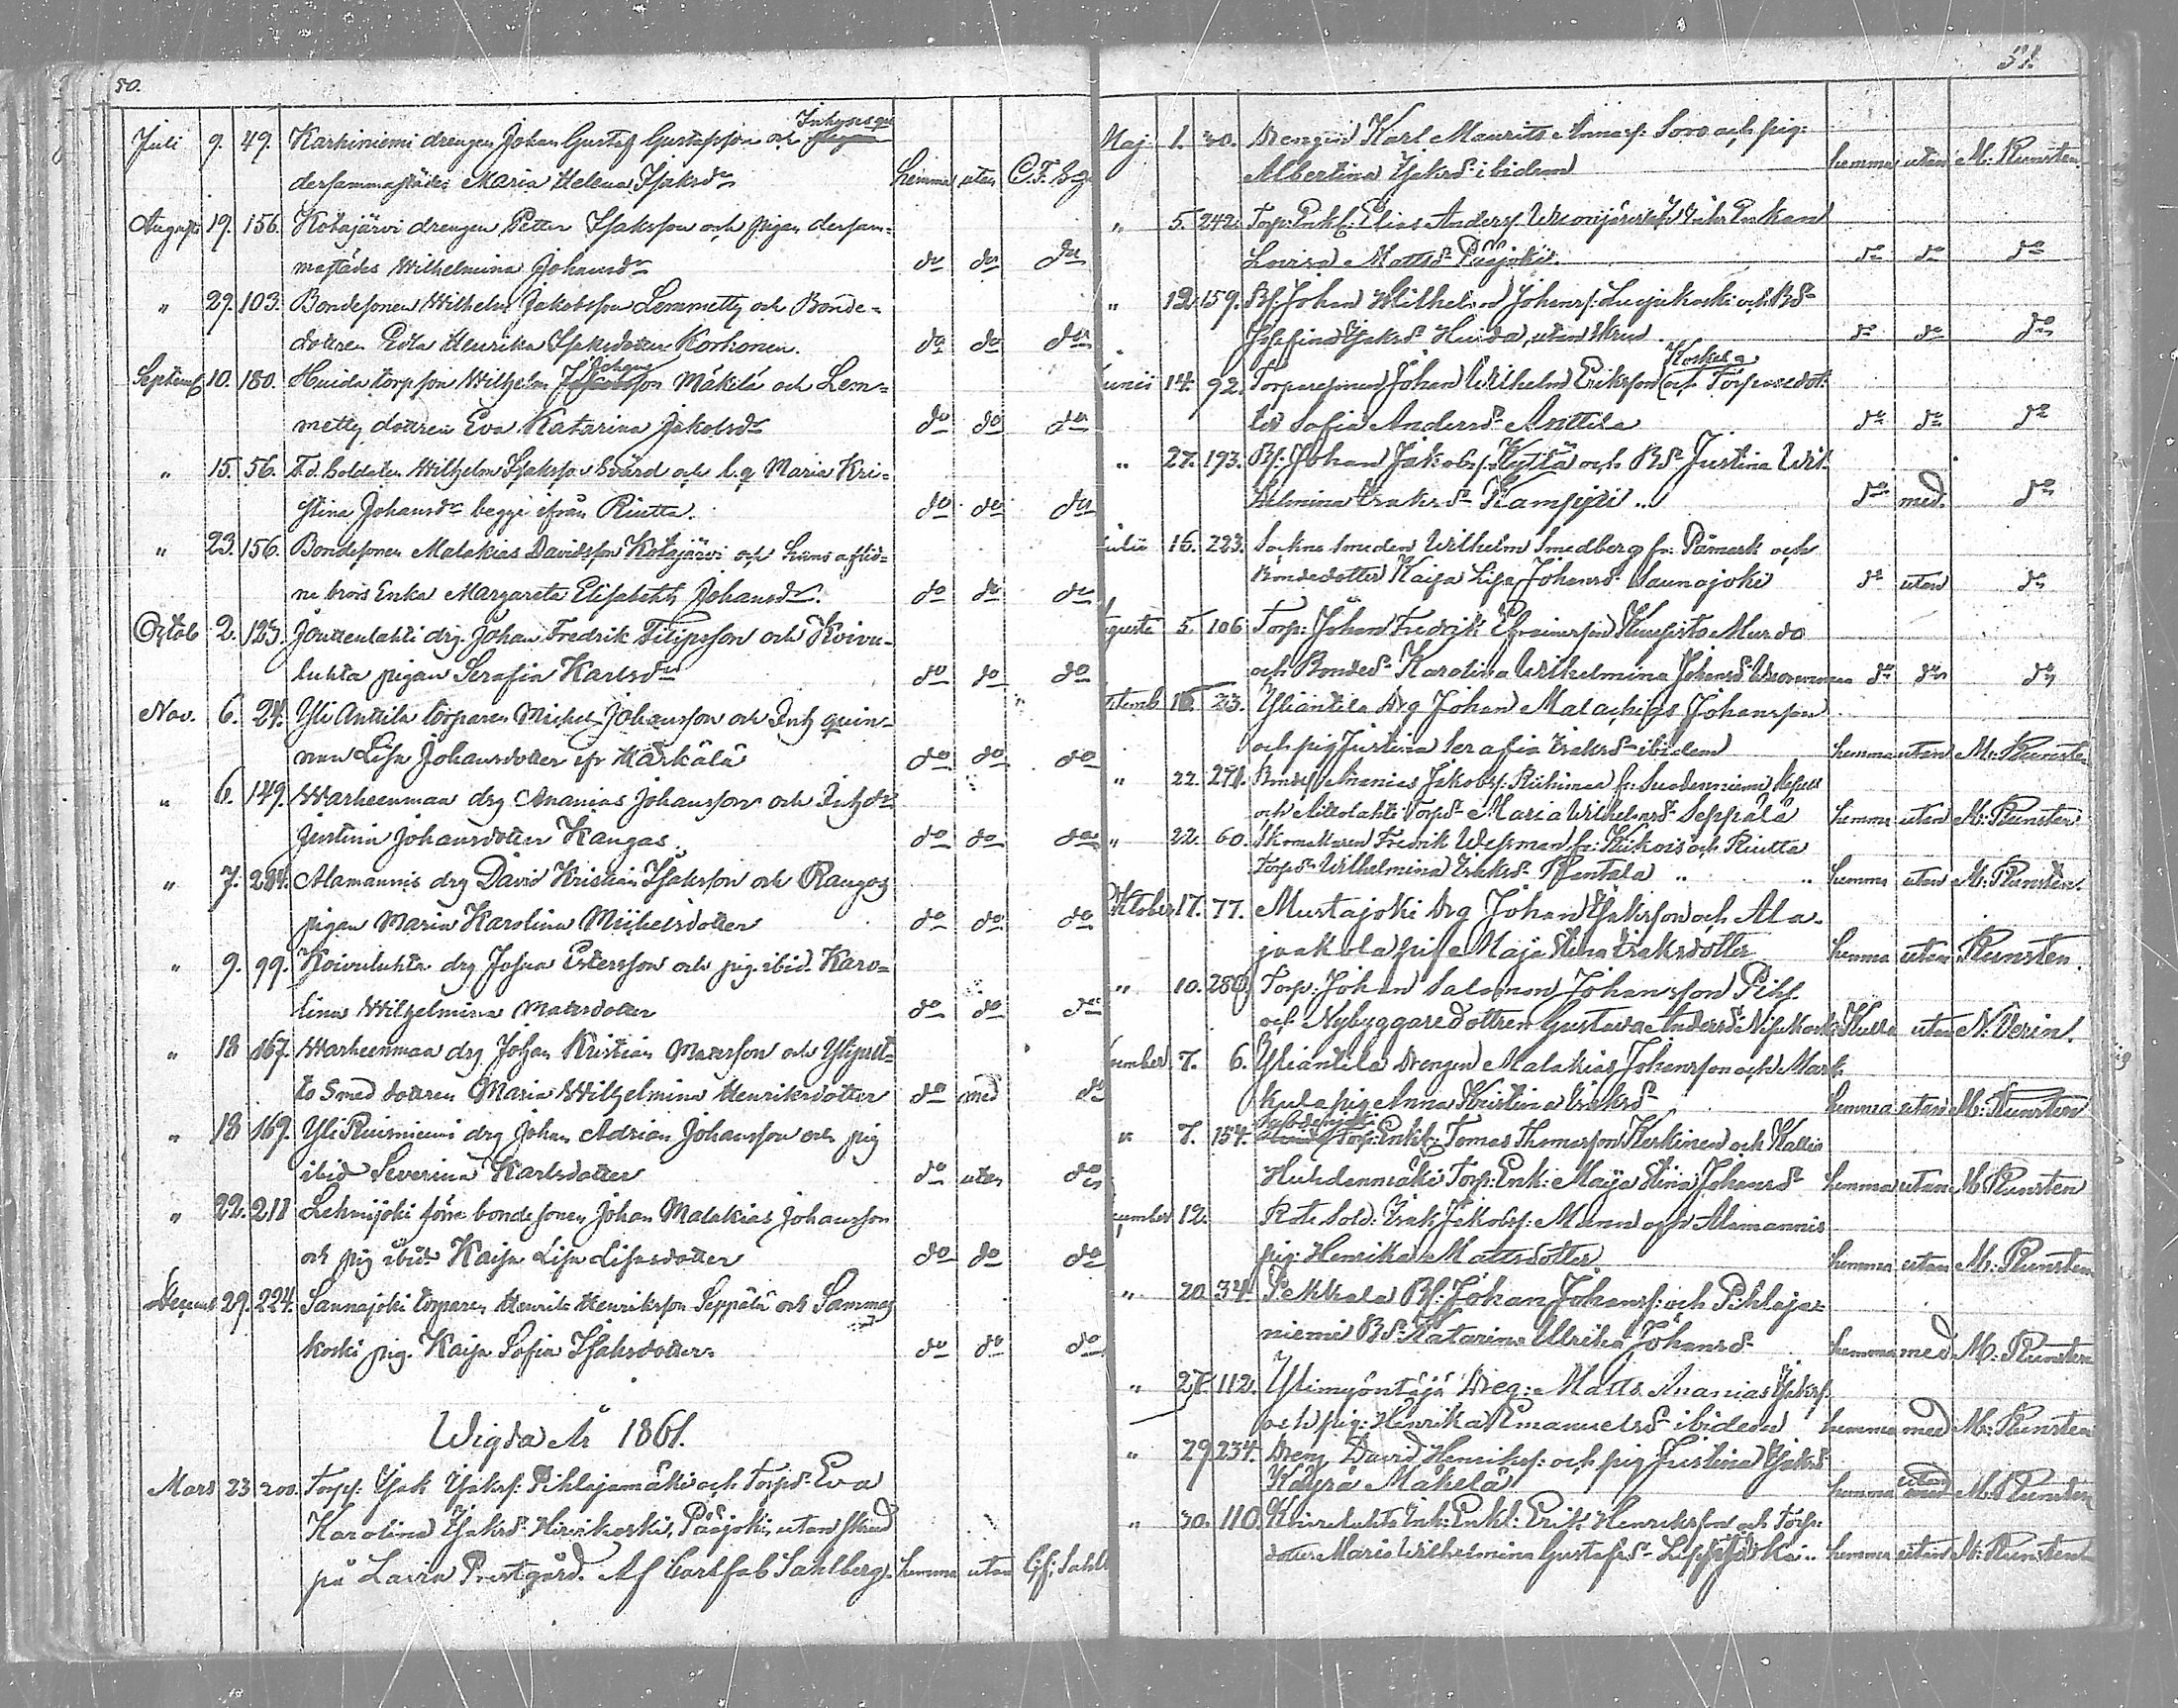 50.
Juli 9. 49. Karhiniemi drengen Johan Gustaf Gustafsson och Inhysesqu
dersammastädes Maria Helena Isaksdr hemma utan C.F. Sg
August 19. 156. Kotajärvi drengen Petter Isaksson och pigan dersam=
mastädes Wilhelmina Johansdr do do do
" 29. 103. Bondesonen Wilhelm Jakobsson Lemmetty och Bonde=
dottren Edla Henrika Isaksdotter Korhonen. do do do
Septemb 10. 180. Huida torpson Wilhelm Johans son Mäkilä och Lem=
metty dottren Eva Katarina Jakobsdr do do do
" 15. 56. F.d. Soldaten Wilhelm Isaksson Svärd och l.q Maria Kri=
stina Johansdr begge ifrån Riutta. do do do
" 23. 156. Bondesonen Malakias Davidsson Kotajärvi och hans aflid=
ne brors Enka Margareta Elisabeth Johansdr. do do do
Octob 2. 123. Jouttenlahti drg. Johan Fredrik Filipsson och Koivu=
luhta pigan Serafia Karlsdr do do do
Nov. 6. 24. Yli Anttila torparen Michel Johansson och Inh quin=
nan Lisa Johansdotter ifr Markälä do do do
" 6. 149. Warheenmaa drg Ananias Johansson och Inhdr
Justina Johansdotter Kangas do do do
" 7. 284. Alamannis drg David Kristian Isaksson och Raugos
pigan Maria Karolina Michelsdotter do do do
" 9. 99. Koivuluhta drg Josua Estersson och pig. ibid. Karo=
lina Wilhelmina Matsdotter do do do
" 18 167. Warheenmaa drg Johan Kristian Matsson och Ylipelt=
to Smed dottren Maria Wilhelmina Henriksdotter do med do
" 18 169. Yli Ruisniemi drg Johan Adrian Johansson och pig
ibid Severina Karlsdotter do utan do
" 22. 211 Lehmijoki förre bondesonen Johan Malakias Johansson
och pig ibid. Kaisa Lisa Lisasdotter do do do
Decemb 29. 224. Saunajoki torparen Henrik Henriksson Seppälä och Sammal
koski pig. Kaisa Sofia Isaksdotter. do do do
Wigda År 1861.
Mars 23 200. Torpf: Isak Isaksf: Pihlajamäki och Torpdr Eva
Karolina Isaksdr Hirvikoski, Pääjoki, utan skrud
på Lavia Prestgård. Af Sahlberg. hemma utan
51.
Maj. 1. 30. Drengen Karl Maurits Annasf: Sovo och pig:
Albertina Isaksdr ibidem hemma utan M: Runsten
" 5. 242. Torp: Enkl: Elias Andersf. och Inhs Enkan
Lovisa Mattsdr Pääjoki do do do
" 12. 159. Bf: Johan Wilhelm Johansf: Susikoski och Bdr
Josefina Isaksdr Huida, utan skrud do do do
Junii 14. 92. Torparesonen Johan Wilhelm Eriksson Koskela och Torparedot-
ter Sofia Andersdr Anttila do do do
" 27. 193. Bf: Johan Jakobsf: Kyttä och Bdr Justina Wil-
helmina Isaksdr Kamppi " do med do
Julii 16. 223. Sockne smeden Wilhelm Smedberg fr. Påmark och
Bondedotter Kaisa Lisa Johansdr Saunajoki do utan do
Augusti 5. 106 Torp: Johan Fredrik Efraimsson Murdo
och Bondedr Karolina Wilhelmina Johansdr Wuorenmaa do do do
Septemb 16. 23. Yliantila drg Johan Malachias Johansson
och pig Justina Serafia Isaksdr ibidem hemma utan M: Runsten
" 22. 271. Bondef Ananias Jakobsf: Riihimaa fr. Suodenniemi
och Torpdr Maria Wilhelmsdr Seppälä hemma utan M: Runsten
" 22. 60. Skomakaren Fredrik Wessman fr. Kiikois och Riutta
Torpdr Wilhelmina Isaksdr Rantala " " hemma utan M: Runsten.
Oktober 17. 77. Mustajoki drg Johan Isaksson och Ala-
jaakola pig Maja Stina Isaksdotter hemma utan Runsten.
" 10. 280. Torp: Johan Salomon Johansson Pihl.
och Nybyggaredottren Gustava Andersdr utan N. Verin.
November 7. 6. Yliantila drengen Malakias Johansson och Mark-
kula pig Anna Kristina Isaksdr hemma utan M: Runsten
" 7. 154. Torp: Enkl: Tomas Thomasson Keskinen och Kallio
Huhdanmäki Torp: Enk: Maija Stina Johansdr hemma utan M Runsten
December 12. Rote Sold. Isak Jakobsf: Mann och Alamannis
pig: Henrika Mattsdotter hemma utan M: Runsten
" 20. 34. Pekkala Bf: Johan Johansf: och Pihlaja-
niemi Bdr Katarina Ulrika Johansdr hemma med M: Runsten
" 27. 112. Ylimyöntäjä Dreg: Matts Ananias Isaksf.
och pig: Henrika Emanuelsdr ibidem hemma med M: Runsten
" 29 234. Dreng David Henriksf: och pig Justina Isaksdr
Köyrä Mäkelä hemma utan M: Runsten
" 30. 110. Koivuluhta Inh: Enkl: Erik Henriksson och Torp:
dotter Maria Wilhelmina Gustafsdr hemma utan M: Runsten